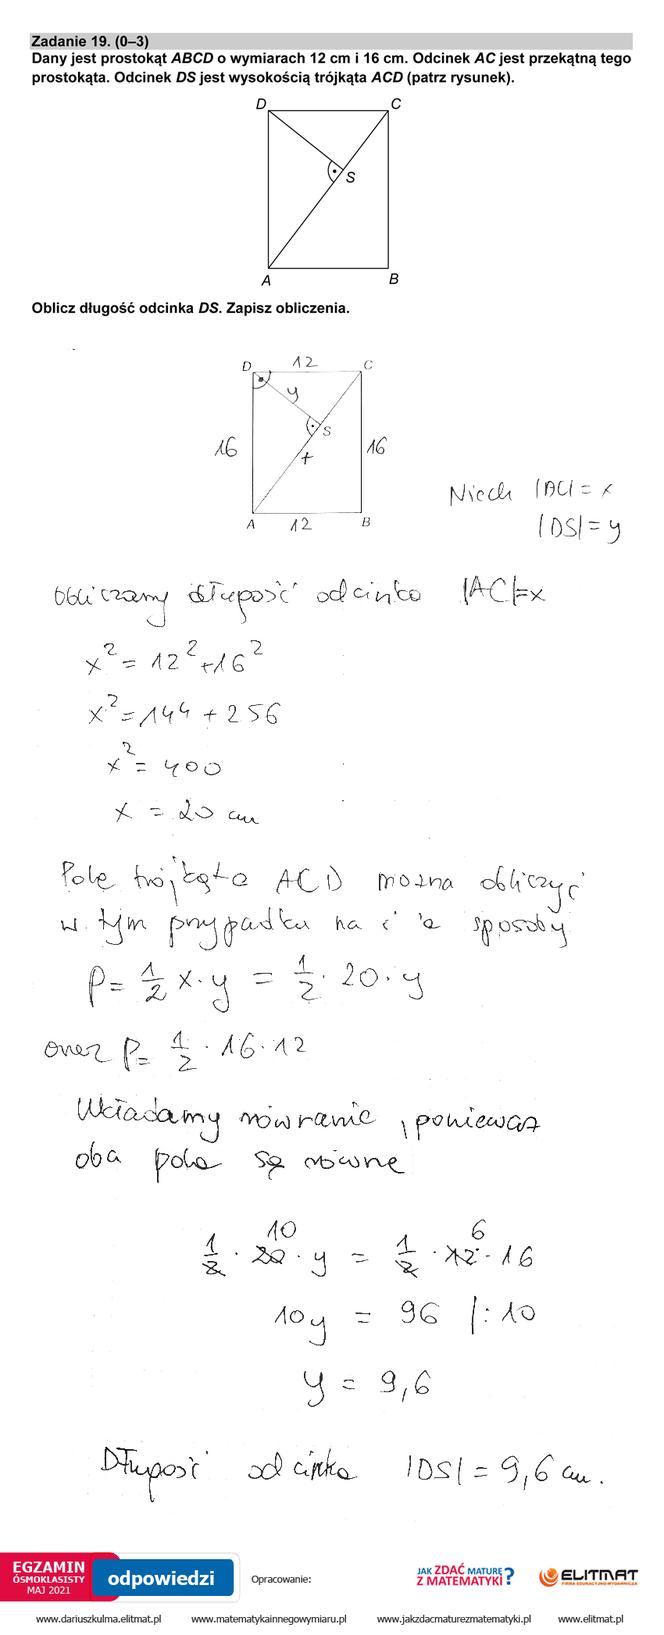 Zadanie 19. (0–3)
Dany jest prostokąt ABCD o wymiarach 12 cm i 16 cm. Odcinek AC jest przekątną tego
prostokąta. Odcinek DS jest wysokością trójkąta ACD (patrz rysunek).
D
C
S
A
B
Oblicz długość odcinka DS. Zapisz obliczenia.
D 12 C
y
S
16
x
16
A 12 B
Niech |AC| = x
|DS| = y
Obliczamy długość odcinka |AC|=x
x² = 12² + 16²
x² = 144 + 256
x² = 400
x = 20 cm
Pole trójkąta ACD można obliczyć
w tym przypadku na sposoby
P = 1/2 x · y = 1/2 · 20 · y
oraz P = 1/2 · 16 · 12
Układamy równanie, ponieważ
oba pola są równe
10 6
1/2 · 20 · y = 1/2 · 12 · 16
10y = 96 /: 10
y = 9,6
Długość odcinka |DS| = 9,6 cm.
EGZAMIN
ÓSMOKLASISTY
MAJ 2021
odpowiedzi
Opracowanie:
JAK ZDAĆ MATURĘ
Z MATEMATYKI?
ELITMAT
FIRMA EDUKACYJNO-WYDAWNICZA
www.dariuszkulma.elitmat.pl www.matematykainnegowymiaru.pl www.jakzdacmaturezmatematyki.pl www.elitmat.pl